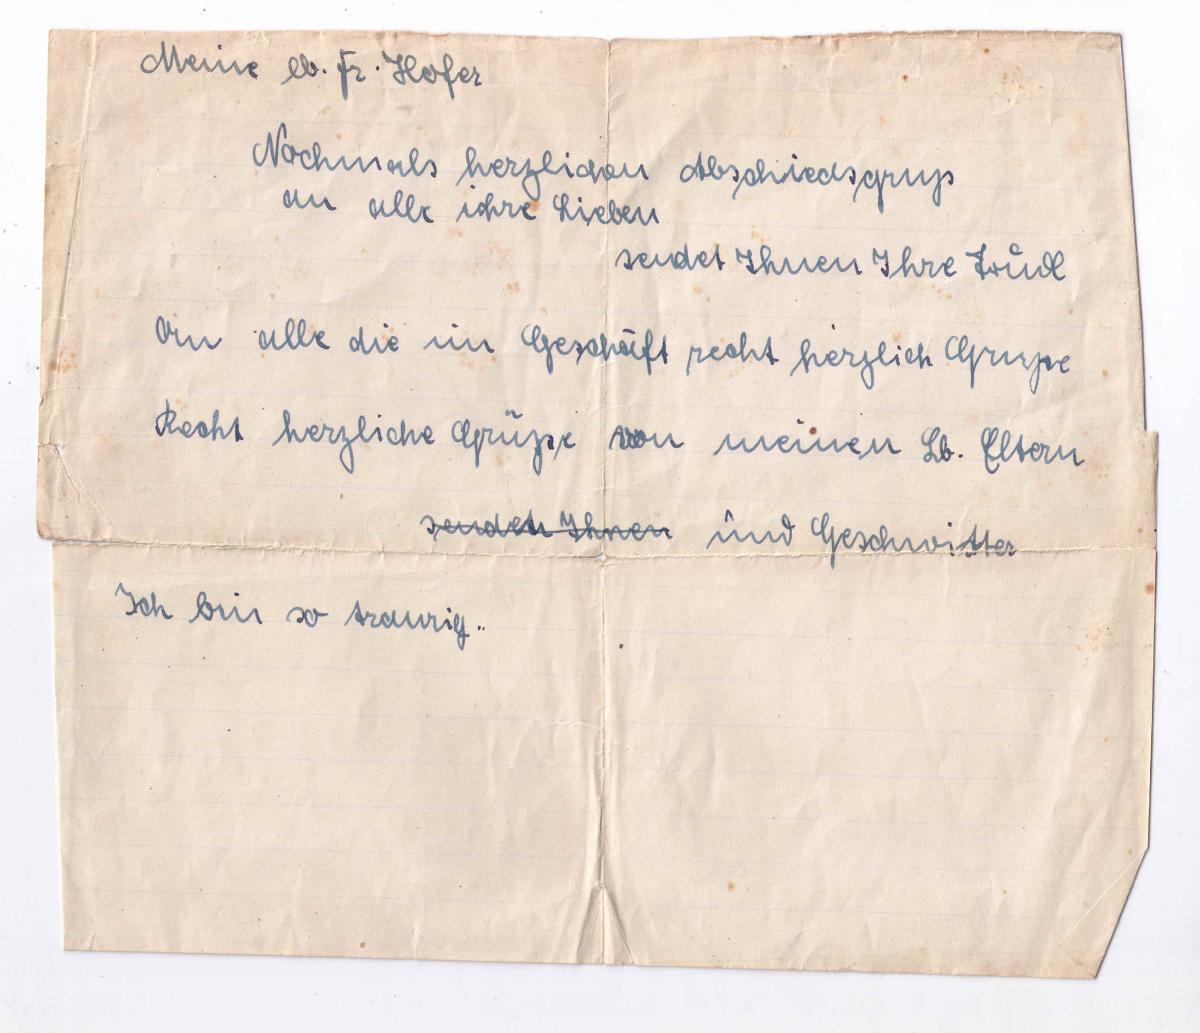 Meine lb. Fr. Hofer
Nochmals herzlichen Abschiedsgruß
an alle ihre Lieben
sendet Ihnen Ihre Trudl
An alle die im Geschäft recht herzlich Gruße
Recht herzliche Grüße von meinen Lb. Eltern
senden Ihnen und Geschwitter
Ich bin so traurig..